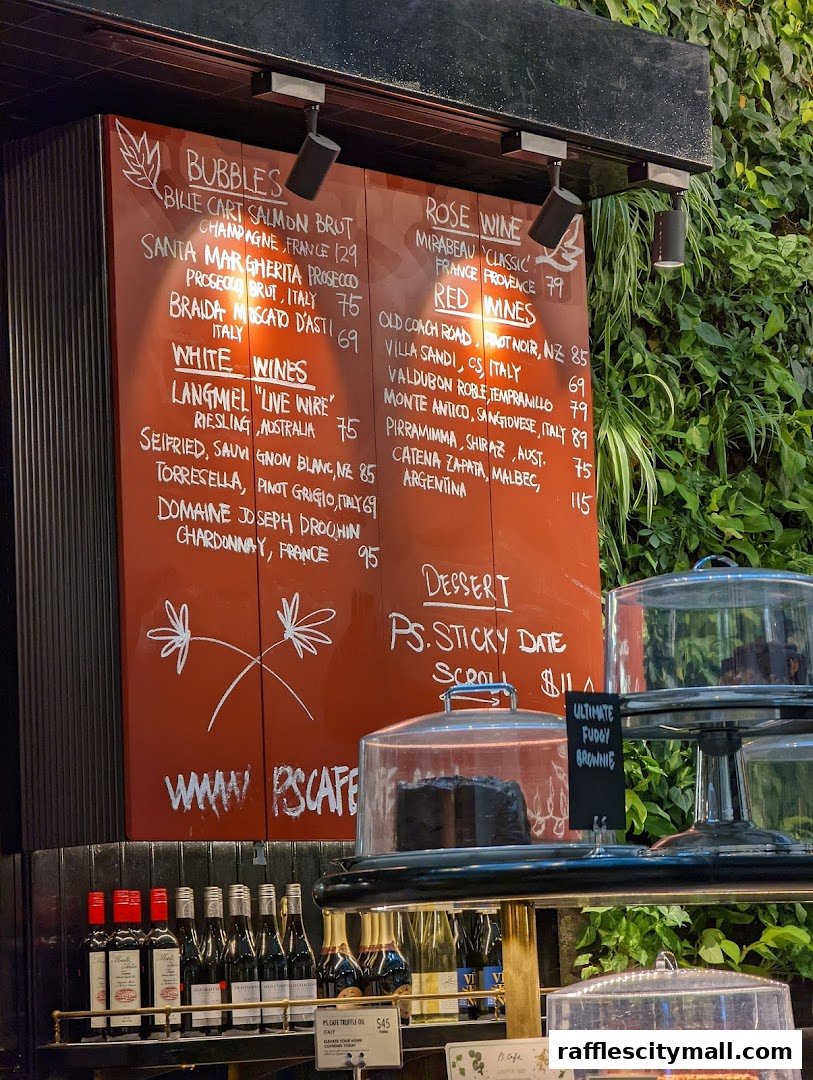 BUBBLES
BILLE CART SALMON BRUT
CHAMPAGNE, FRANCE 129
SANTA MARGHERITA PROSECCO
PROSECCO, BRUT, ITALY 75
BRAIDA MOSCATO D'ASTI
ITALY 69
WHITE WINES
LANGMIEL "LIVE WIRE"
RIESLING, AUSTRALIA 75
SEIFRIED, SAUVIGNON BLANC, NZ 85
TORRESELLA, PINOT GRIGIO, ITALY 69
DOMAINE JOSEPH DROUHIN
CHARDONNAY, FRANCE 95
WWW PSCAFE
ROSE WINE
MIRABEAU 'CLASSIC'
FRANCE PROVENCE 79
RED WINES
OLD COACH ROAD, PINOT NOIR, NZ 85
VILLA SANDI, CS, ITALY 69
VALDUBON ROBLE, TEMPRANILLO 79
MONTE ANTICO, SANGIOVESE, ITALY 89
PIRRAMIMMA, SHIRAZ, AUST. 75
CATENA ZAPATA, MALBEC,
ARGENTINA 115
DESSERT
PS. STICKY DATE
SCROLL $11.
ULTIMATE
FUDGY
BROWNIE
PS.CAFE TRUFFLE OIL $45
ITALY
ELEVATE YOUR HOME
COOKING TODAY
rafflescitymall.com